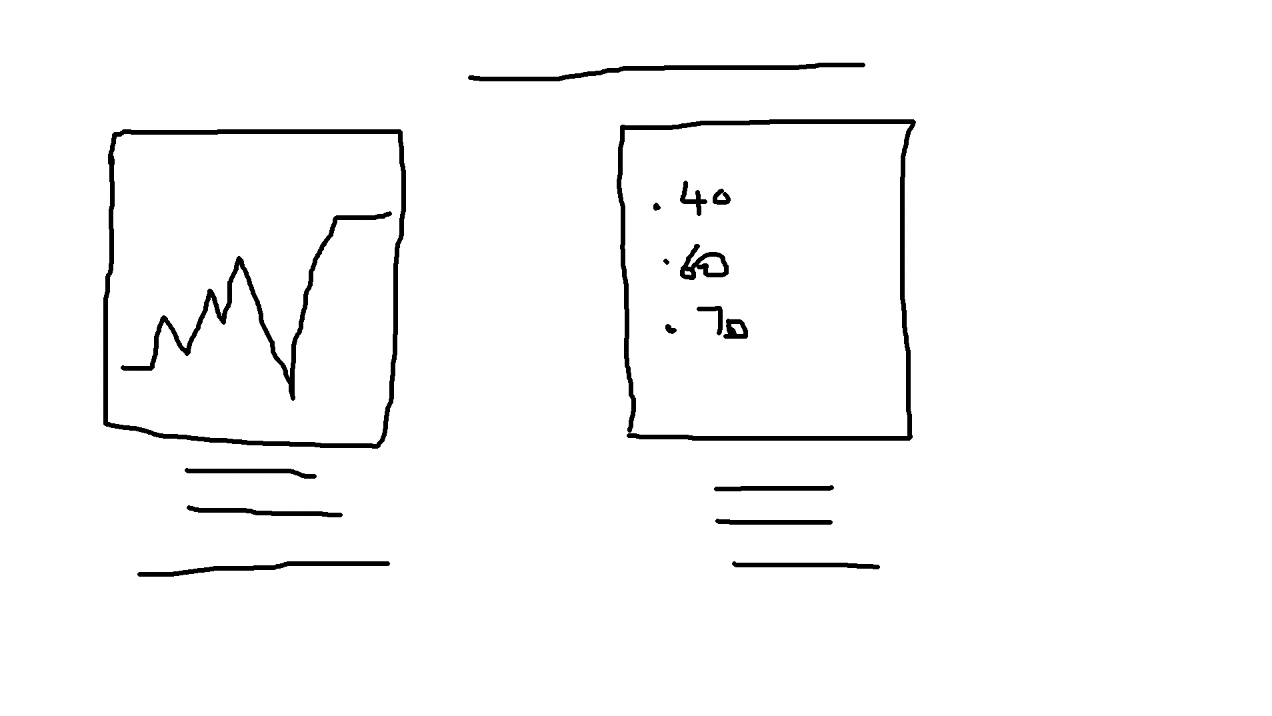 . 40
. 60
. 70